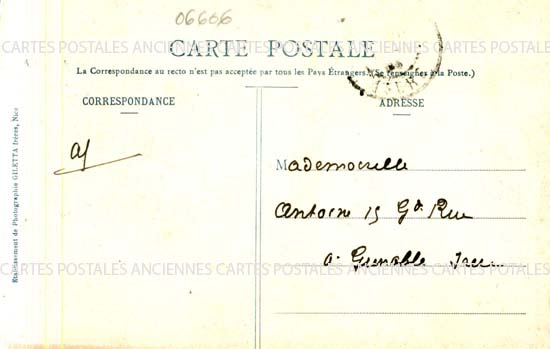 06606
CARTE POSTALE
CARTES POSTALES ANCIENNES CARTES POSTALES ANCIENNES CARTES POSTALES
La Correspondance au recto n'est pas acceptée par tous les Pays Étrangers. (Se renseigner à la Poste.)
CORRESPONDANCE
ADRESSE
Mademoiselle
Antoine 15 Gde Rue
à Grenoble Isère
CARTES POSTALES ANCIENNES CARTES POSTALES ANCIENNES CARTES POTALES
Etablissement de Photographie GILETTA frères, Nice